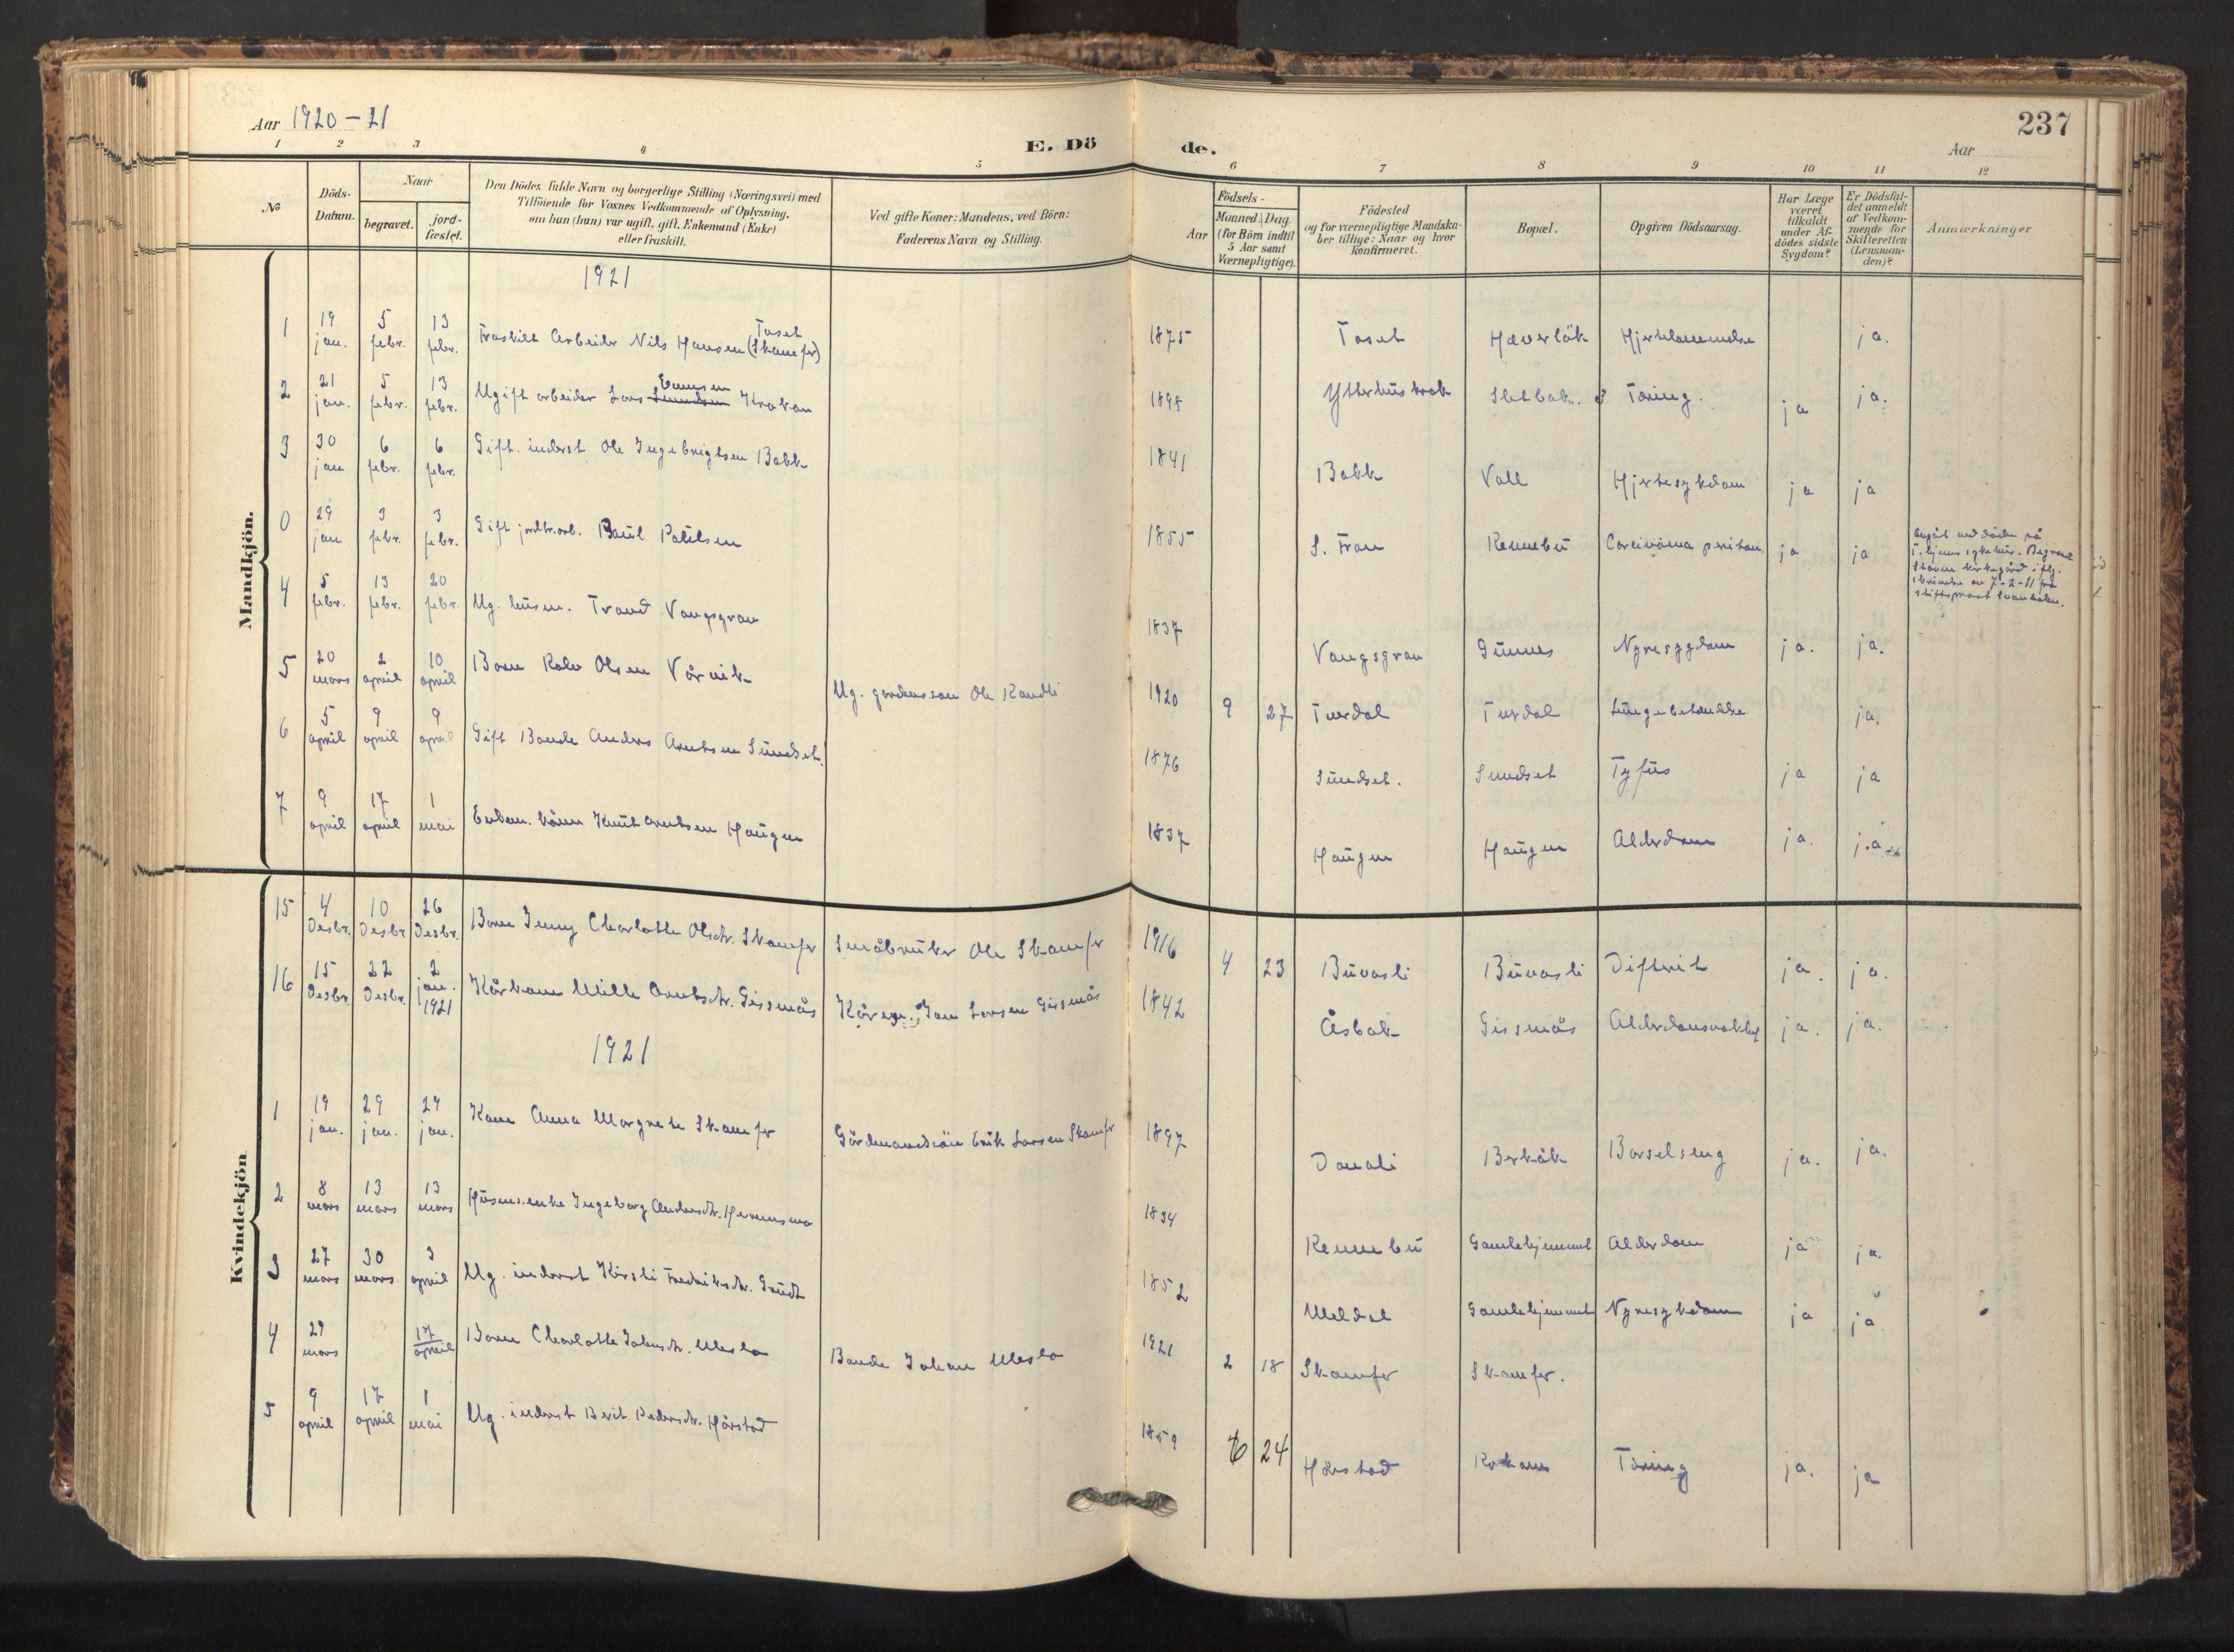 Aar 1920-21
E. Dö de.
237
Aar
1 2 3 4 5 6 7 8 9 10 11 12
No
Döds-Datum.
Naar
begravet.
jord-fæstet.
Den Dödes fulde Navn og borgerlige Stilling (Næringsvei) med
Tilföiende for Voxnes Vedkommende af Oplysning,
om han (hun) var ugift, gift, Enkemand (Enke)
eller fraskilt.
Ved gifte Koner: Mandens, ved Börn:
Faderens Navn og Stilling.
Födsels-
Aar
Maaned. Dag.
(for Börn indtil
5 Aar samt
Værnepligtige).
Födested
og for værnepligtige Mandska-
ber tillige: Naar og hvor
konfirmeret.
Bopæl.
Opgiven Dödsaarsag.
Har Læge
været
tilkaldt
under Af-
dödes sidste
Sygdom?
Er Dödsfal-
det anmeldt
af Vedkom-
mende for
Skifteretten
(Lensman-
den)?
Anmærkninger
Mandkjön.
1921
1 19 jan. 5 febr. 13 febr. Fraskilt Arbeider Nils Hansen Toset (Skamfer) 1875 Toset Haverlök ja.
2 21 jan. 5 febr. 13 febr. Ugift arbeider Lars Krokan 1898 Tæring. ja ja.
3 30 jan 6 febr. 6 febr. Gift. inderst Ole Ingebrigtsen Bakk 1841 Bakk Voll Hjertesykdom ja ja
0 29 jan 3 febr. 3 febr. Gift jordbr.arb. Paul Paulsen 1855 Rennebu ja ja
4 5 febr. 13 febr. 20 febr. Ug. husm. Trond Vangsgrau 1837 Vangsgrau Gunnes Nyresygdom ja. ja.
5 20 mars 2 april 10 april Barn Rolv Olsen Vårvik Ug. gardmsson Ole Randli 1920 9 27 Tverdal Tverdal Lungebetændelse ja.
6 5 april 9 april 9 april Gift Bonde Anders Arntsen Sundset. 1876 Sundset. Sundset Tyfus ja ja
7 9 april 17 april 1 mai Enkem. Knut Arntsen Haugen 1837 Haugen Haugen Alderdom ja. ja
Kvindekjön
15 4 Desbr. 10 Desbr 26 Desbr. Barn Jenny Charlotte Olsdtr. Skamfer Småbruker Ole Skamfer 1916 4 23 Buvasli Buvasli Difterit ja. ja.
16 15 Desbr. 22 Desbr. 2 jan. 1921 Kårkone Mille Arntsdtr. Gissmås Kårm. Jon Larsen Gissmås 1842 Åsbak Gissmås ja. ja.
1921
1 19 jan. 29 jan. 29 jan. Kone Anna Margrete Skamfer Gårdmandssön Erik Larsen Skamfer 1897 Donali Berkåk Barselseng ja. ja.
2 8 mars 13 mars 13 mars Husms.enke Ingeborg Andersdtr. Hevensmo 1834 Rennebu Gamlehjemmet Alderdom ja ja.
3 27 mars 30 mars 3 april Ug. inderst Kirsti Fredriksdtr. Grudt 1852 Meldal Gamlehjemmet Nyresykdom ja ja
4 29 mars 17 april Barn Charlotte Johansdtr. Meslo Bonde Johan Meslo 1921 2 18 Skamfer Skamfer.
5 9 april 17 april 1 mai Ug. inderst Berit Pedersdtr. Hårstad 1859 6 24 Hårstad Tæring ja. ja